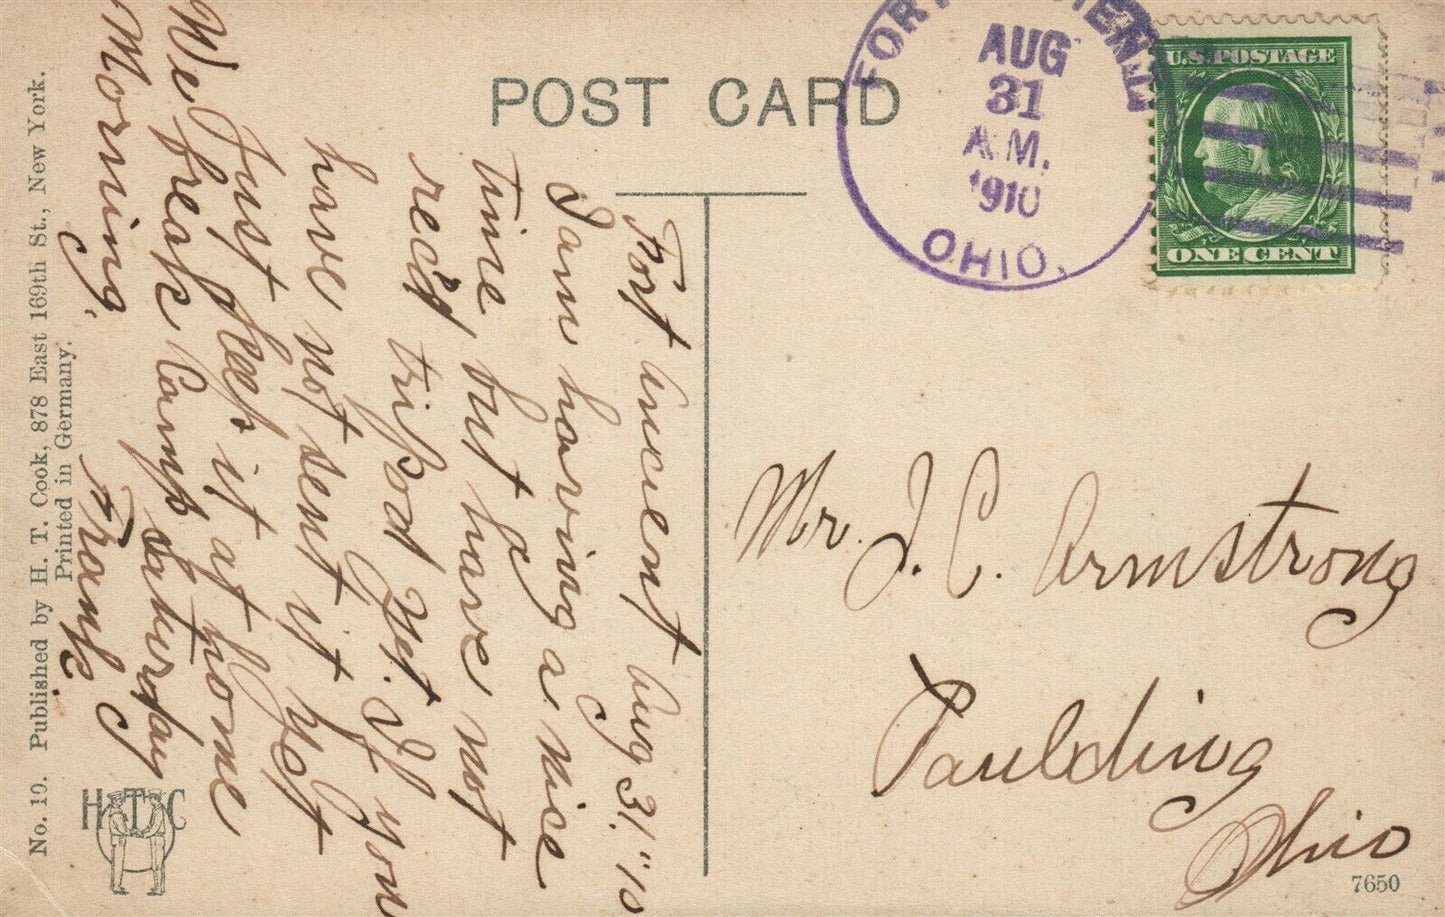 POST CARD
FORT ANCIENT
AUG
31
A.M.
1910
OHIO.
U.S. POSTAGE
ONE CENT
Fort Ancient Aug 31. "10
I am having a nice
time, but have not
rec'd tripod yet. If you
have not sent it yet
Just keep it at home
We break Camp Saturday
Morning.
Frank
Mr. J. C. Armstrong
Paulding
Ohio
No. 10. Published by H. T. Cook, 878 East 169th St., New York.
Printed in Germany.
HTC
7650